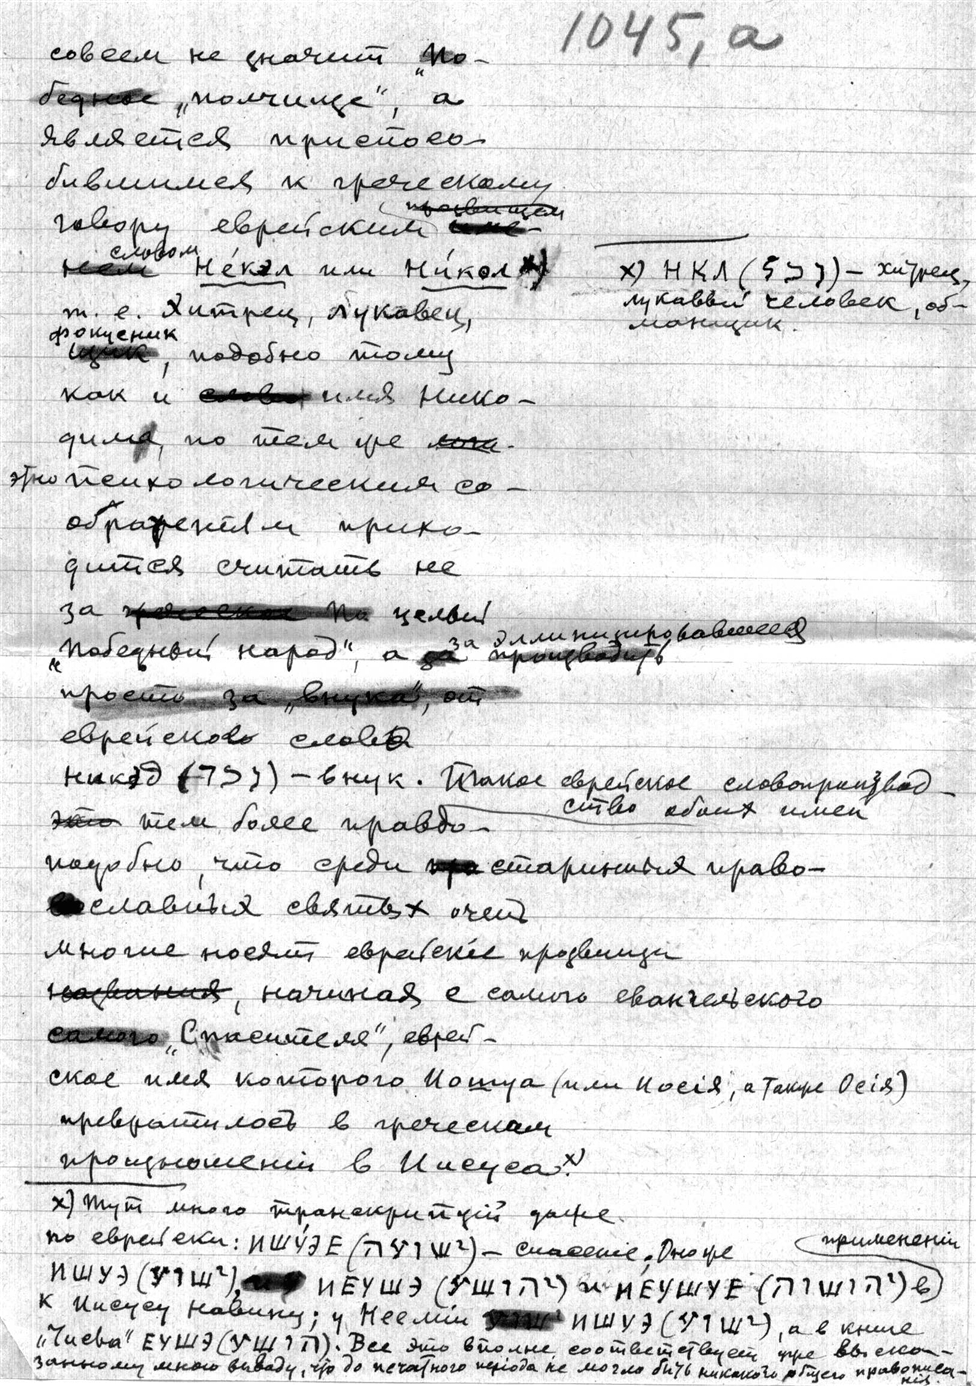 1045, а
совсем не значит „По-
бедное „полчище“, а
является приспосо-
бившимся к греческому
говору еврейским прозвищем име-
нем словом Нéкэл или Нѝкол х)
т. е. Хитрец, Лукавец,
фокусник
щик, подобно тому
как и слово имя Нико-
дима, по тем же
этнопсихологическим со-
обратеніям прихо-
дится считать не
за греческое По целый
„Победный народ“, а за эллинизировавшееся
производить
просто за „внука“, от
еврейского слова
никэд (נכד) — внук. Такое еврейское словопроизвод-
ство обоих имен
это тем более правдо-
подобно, что среди старинных право-
славных святых очень
многие носят еврейскіе прозвищи
названия, начиная с самого евангельского
самого „Спасителя“, еврей-
ское имя которого Иошуа (или Иосія, а также Осія)
превратилось в греческом
произношеніи в Иисуса.х)
х) НКЛ (נכל) — хитрец,
лукавый человек, об-
манщик.
х) Тут много транскрипцій даже
по еврейски: ИШУЭЕ (ישועה) — спасеніе. Оно же
примененіи
ИШУЭ (ישוע), ИЕУШЭ (יהושע) и ИЕУШУЕ (יהושוה) в
к Иисусу Навину; у Неемии ИШУЭ (ישוע), а в книге
„Числа“ ЕУШЭ (הושע). Все это вполне соответствует уже выска-
занному мною выводу, что до печатного періода не могло быть никакого общего правописа-
нія.